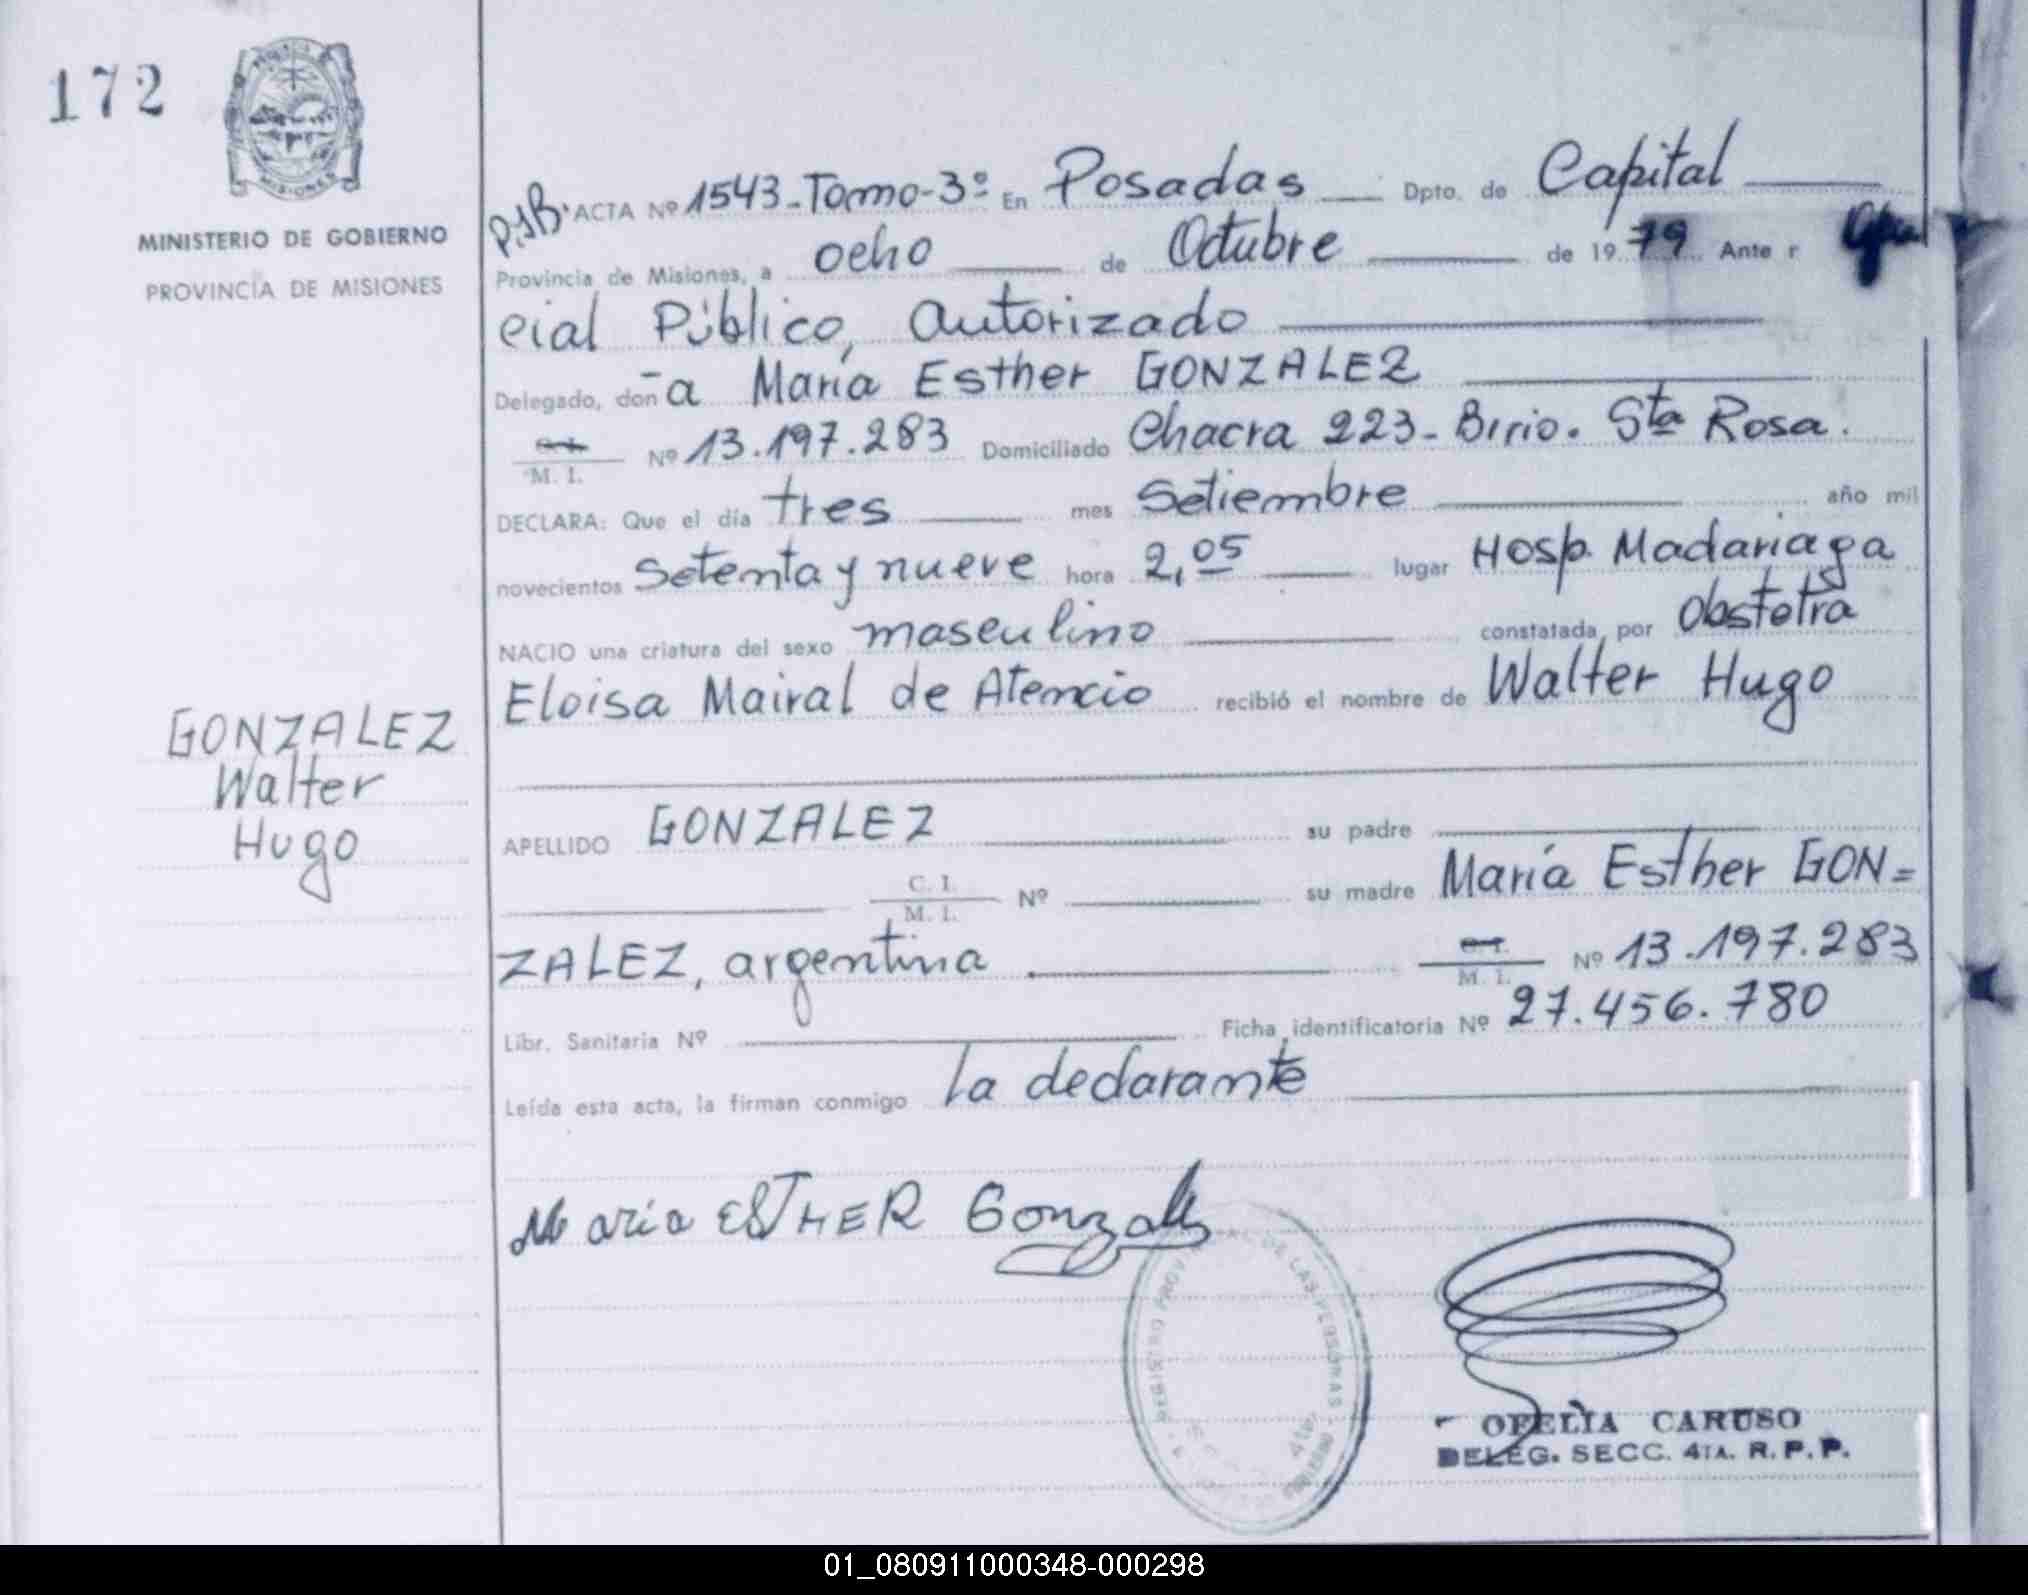 172
MISIONES
MINISTERIO DE GOBIERNO
PROVINCIA DE MISIONES
GONZALEZ
Walter
Hugo
ACTA Nº 1543-Tomo-3º En Posadas Dpto. de Capital
Provincia de Misiones, a ocho de Octubre de 1979 Ante
cial Público, Autorizado
Delegado, doña María Esther GONZALEZ
M. I. Nº 13.197.283 Domiciliado Chacra 223- Birio. Sta Rosa.
DECLARA: Que el día tres mes Setiembre año mil
novecientos Setenta y nueve hora 2,05 lugar Hosp. Madariaga
NACIO una criatura del sexo masculino constatada por Obstetra
Eloisa Mairal de Atencio recibió el nombre de Walter Hugo
APELLIDO GONZALEZ su padre
C. I. M. I. Nº su madre María Esther GON=
ZALEZ, argentina M. I. Nº 13.197.283
Libr. Sanitaria Nº Ficha identificatoria Nº 27.456.780
Leída esta acta, la firman conmigo la declarante
María ESTHER Gonzalez
REGISTRO PROV DE LAS PERSONAS
OFELIA CARUSO
DELEG. SECC. 4TA. R. P. P.
01_080911000348-000298